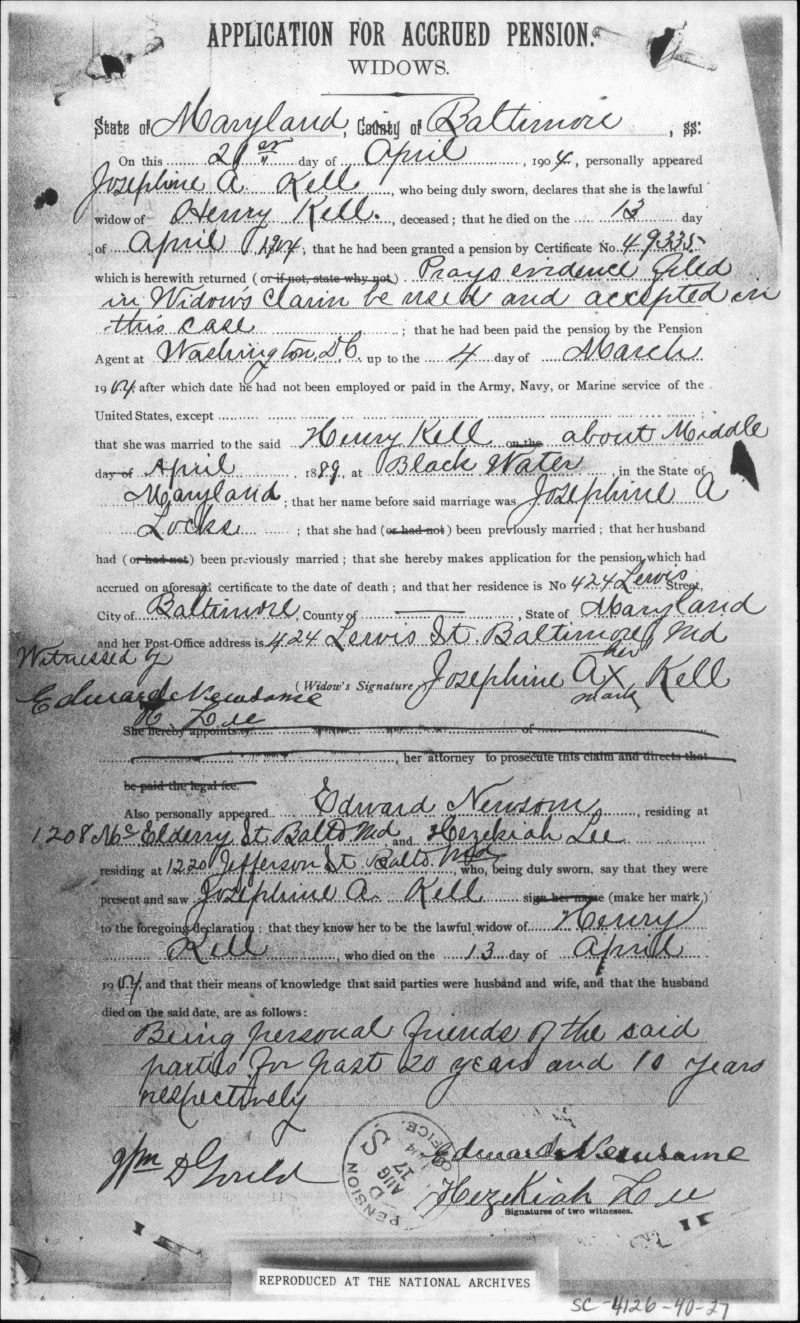 APPLICATION FOR ACCRUED PENSION.
WIDOWS.
State of Maryland, County of Baltimore, ss:
On this 21st day of April, 1904, personally appeared
Josephine A. Kell, who being duly sworn, declares that she is the lawful
widow of Henry Kell., deceased; that he died on the 13 day
of April 1904, that he had been granted a pension by Certificate No. 49335
which is herewith returned (or if not, state why not) Prays evidence filed
in Widow's Claim be used and accepted in
this case; that he had been paid the pension by the Pension
Agent at Washington, D.C. up to the 4 day of March
1904, after which date he had not been employed or paid in the Army, Navy, or Marine service of the
United States, except ;
that she was married to the said Henry Kell on the about Middle
day of April, 1889, at Black Water, in the State of
Maryland; that her name before said marriage was Josephine A
Locks; that she had (or had not) been previously married; that her husband
had (or had not) been previously married; that she hereby makes application for the pension which had
accrued on aforesaid certificate to the date of death; and that her residence is No 424 Lewis Street,
City of Baltimore, County of ———, State of Maryland
and her Post-Office address is 424 Lewis St. Baltimore, Md
Witnessed by
her
Edward Newsome (Widow's Signature) Josephine A X Kell
mark
H Lee
She hereby appoints of
, her attorney to prosecute this claim and directs that
be paid the legal fee.
Also personally appeared Edward Newsom, residing at
1208 Mc Elderry St Balto Md and Hezekiah Lee
residing at 1220 Jefferson St. Balto. Md, who, being duly sworn, say that they were
present and saw Josephine A. Kell sign her name (make her mark)
to the foregoing declaration; that they know her to be the lawful widow of Henry
Kell, who died on the 13 day of April
1904, and that their means of knowledge that said parties were husband and wife, and that the husband
died on the said date, are as follows:
Being personal friends of the said
parties for past 20 years and 10 years
respectively
Wm D Gould
Edward Newsome
Hezekiah Lee
Signatures of two witnesses.
U.S. PENSION OFFICE.
AUG
17
REPRODUCED AT THE NATIONAL ARCHIVES
SC-4126-40-27